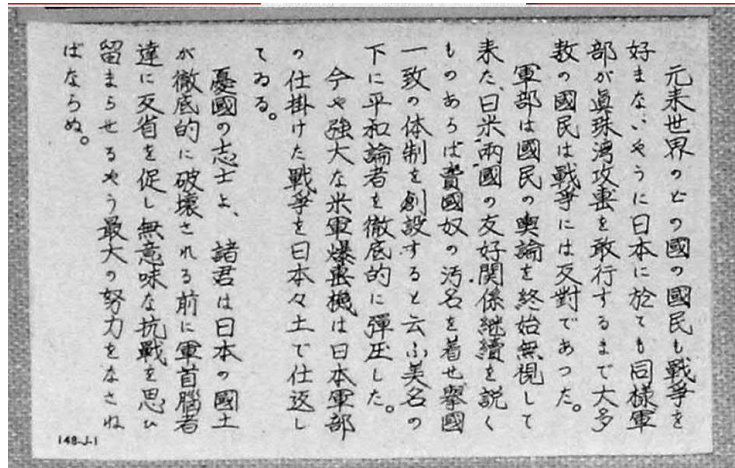 元来世界のどの國の國民も戦爭を
好まないやうに日本に於ても同様軍
部が眞珠湾攻撃を敢行するまで大多
数の國民は戦爭には反對であつた。
軍部は國民の輿論を終始無視して
来た、日米兩國の友好関係継續を説く
ものあらば賣國奴の汚名を着せ擧國
一致の体制を創設すると云ふ美名の
下に平和論者を徹底的に彈圧した。
今や強大な米軍爆撃機は日本軍部
の仕掛けた戦爭を日本々土で仕返し
てゐる。
憂國の志士よ、諸君は日本の國土
が徹底的に破壊される前に軍首腦者
達に反省を促し無意味な抗戰を思ひ
留まらせるやう最大の努力をなさね
ばならぬ。
148-J-1